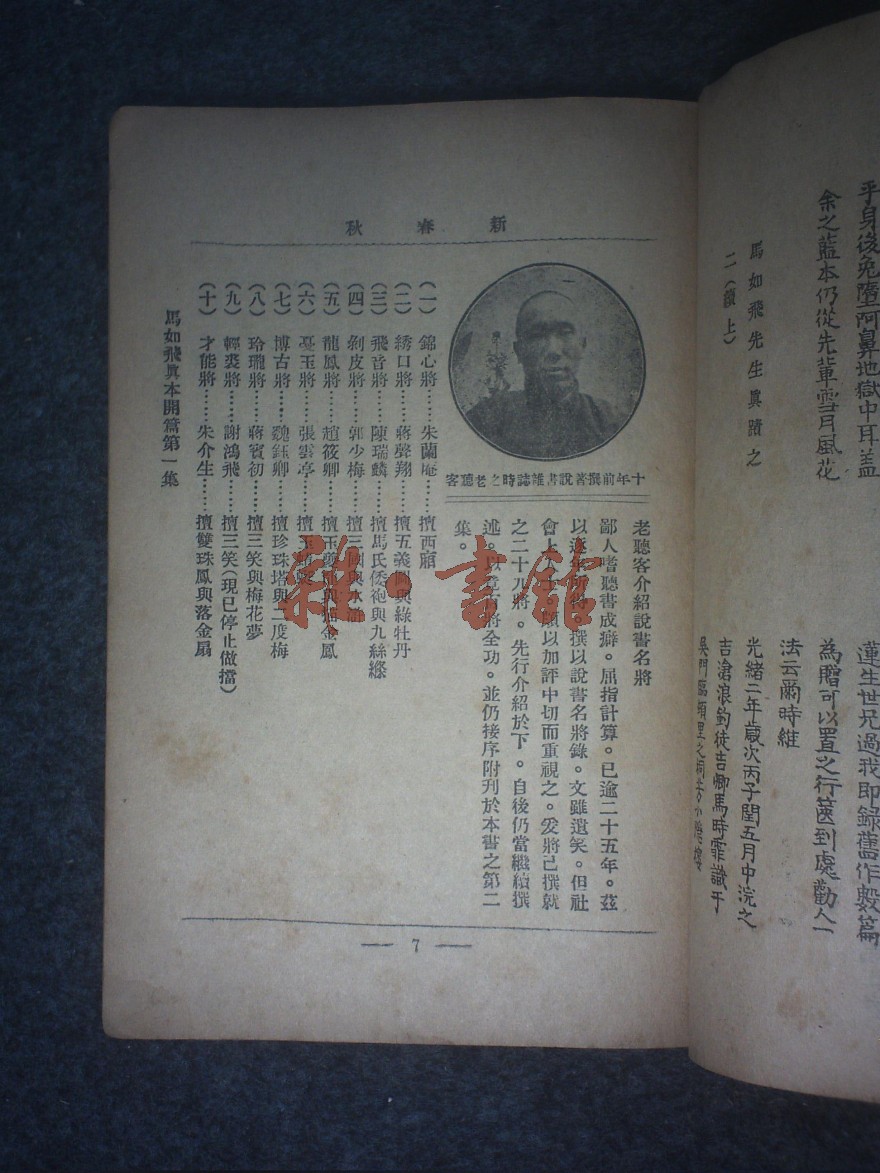 乎身後免墮阿鼻地獄中耳蓋
余之藍本仍從先輩雪月風花
馬如飛先生眞蹟之
二(續上)
蓮生世兄過我卽錄舊作數篇
為贈可以置之行篋到處勸人一
法云爾時維
光緒二年歲次丙子閏五月中浣之
吉滄浪釣徒吉卿馬時霏識于
吳門臨頓里之桐
新春秋
十年前撰著說書雜誌時之老聽客
老聽客介紹說書名將
鄙人嗜聽書成癖。屈指計算。已逾二十五年。茲
以逐年所得。撰以說書名將錄。文雖遺笑。但社
會上人士。頗以加評中切而重視之。爰將已撰就
之二十九將。先行介紹於下。自後仍當繼續撰
述。以竟百將全功。並仍接序附刊於本書之第二
集。
(一)錦心將……朱蘭庵……擅西廂
(二)綉口將……蔣聲翔……擅五義圖與綠牡丹
(三)飛音將……陳瑞麟……擅馬氏倭袍與九絲縧
(四)剝皮將……郭少梅……擅三國與水滸
(五)龍鳳將……趙筱卿……擅玉夔龍與描金鳳
(六)戞玉將……張雲亭……擅玉蜻蜓
(七)博古將……魏鈺卿……擅珍珠塔與二度梅
(八)玲瓏將……蔣賓初……擅三笑與梅花夢
(九)輕裘將……謝鴻飛……擅三笑(現已停止做擋)
(十)才能將……朱介生……擅雙珠鳳與落金扇
馬如飛眞本開篇第一集
7
雜·書館